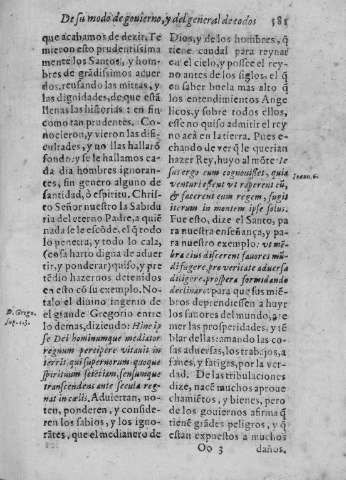 De su modo de gouierno, y del general de todos 585
que acabamos de dezir. Te
mieron esto prudentissima
mente los Santos, y hom-
bres de grãdissimos aduer
dos, reusando las mitras, y
las dignidades, de que estã
llenas las historias: en fin
como tan prudentes. Co-
nocieron, y vieron las difi-
cultades, y no llas hallarõ
fondo: y se le hallamos ca-
da dia hombres ignoran-
tes, sin genero alguno de
santidad, ò espiritu. Chris-
to Señor nuestro la Sabidu
ria del eterno Padre, a quiẽ
nada se le escõde, el q̃ todo
lo penetra, y todo lo cala,
(cosa harto digna de aduer
tir, y ponderar) quiso, y pre
tẽdio hazernos detenidos
en esto cõ su exemplo. No-
talo el diuino ingenio de
el grande Gregorio entre
lo demas, diziendo: Hinc ip
se Dei hominumque mediator
regnum percipere vitauit in
terris, qui supernorum quoque
spirituum scientiam, sensumque
transcendens ante secula reg-
nat in cœlis. Aduiertan, no-
ten, ponderen, y conside-
ren los sabios, y los igno-
rãtes, que el medianero de
D. Grego.
sup. cit.
Dios, y de los hombres, q̃
tiene caudal para reynar
en el cielo, y possee el rey-
no antes de los siglos, el q̃
en saber buela mas alto q̃
los entendimientos Ange
licos, y sobre todos ellos,
esse no quiso admitir el rey
no acà en la tierra. Pues e-
chando de ver q̃ le querian
hazer Rey, huyo al mõte: Ie
sus ergo cum cognouisset, quia
venturi essent vt raperent eũ,
& facerent eum regem, fugit
iterum in montem ipse solus.
Fue esto, dize el Santo, pa
ra nuestra enseñança, y pa-
ra nuestro exemplo: vt mẽ-
bra eius discerent fauores mũ
di fugere, pro veritate aduersa
diligere, prospera formidando
declinare: para que sus miẽ
bros deprendiessen a huyr
los fauores del mundo, a te
mer las prosperidades, y tẽ
blar dellas: amando las co-
sas aduersas, los trabajos, a
fanes, y fatigas, por la ver-
dad. De las tribulaciones
dize, nacẽ muchos aproue
chamiẽtos, y bienes, pero
de los gouiernos afirma q̃
tienẽ grãdes peligros, y q̃
estan expuestos a muchos
Ioann. 6.
Oo 3 daños,